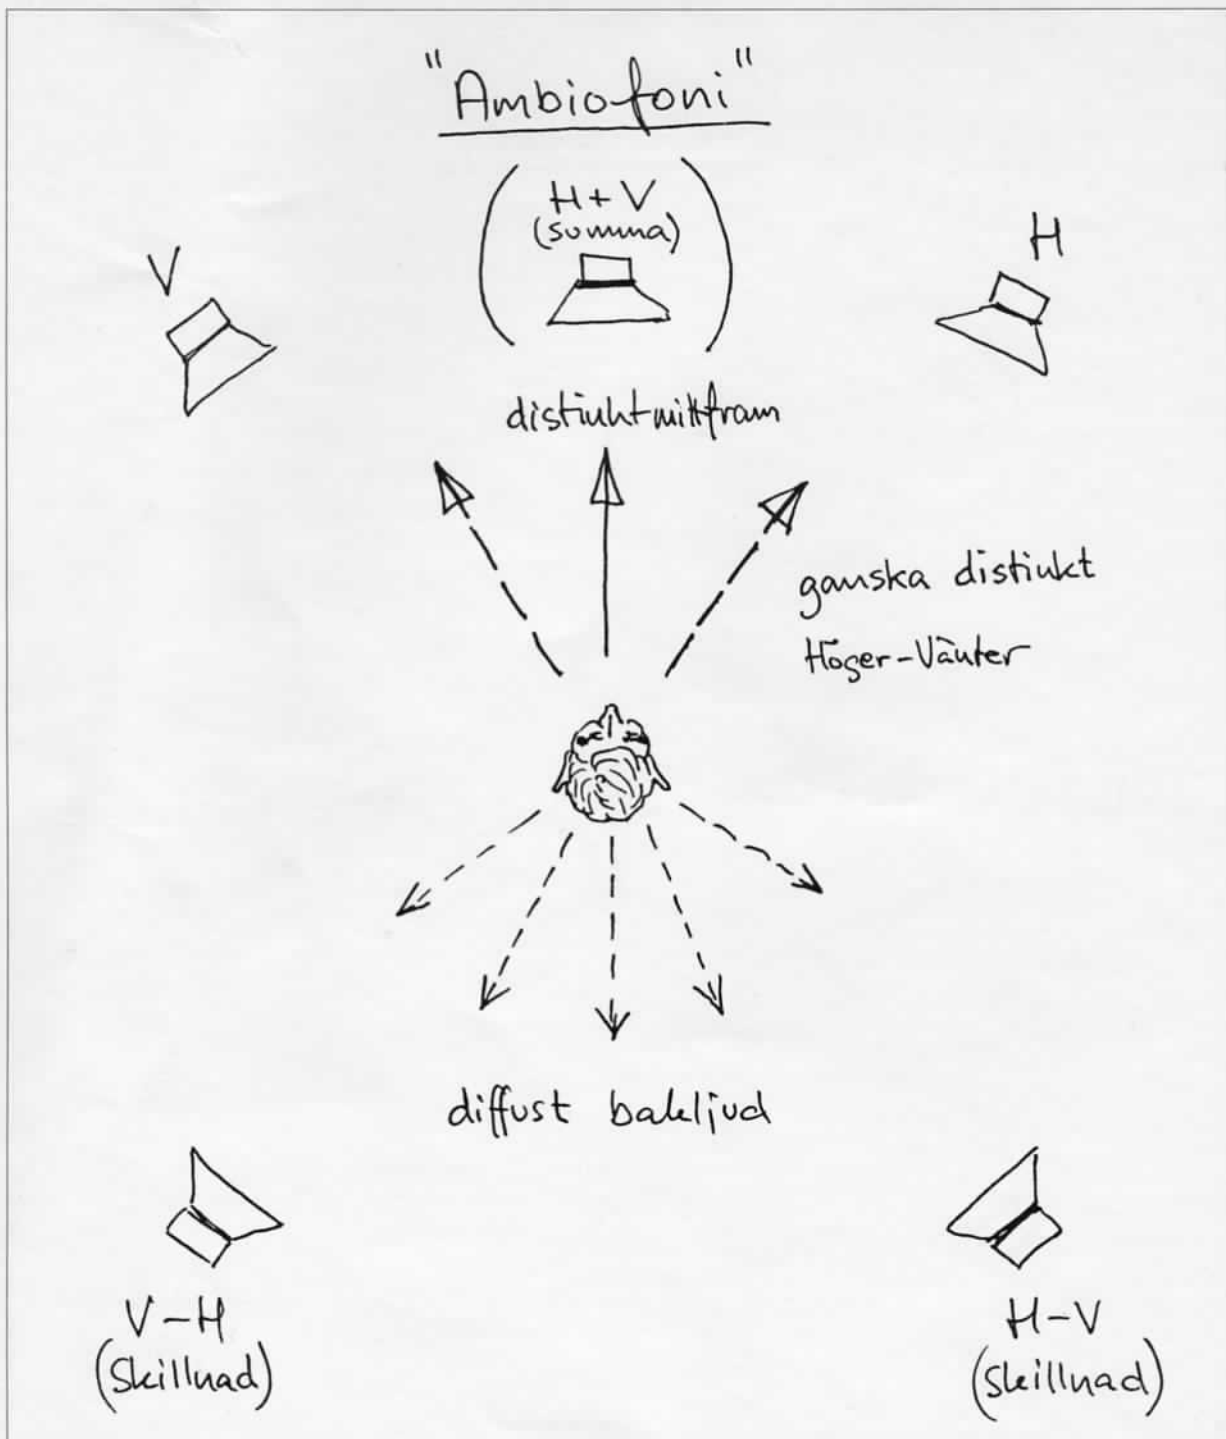 "Ambiofoni"
H+V
(summa)
V
H
distinkt mittfram
ganska distinkt
Höger-Vänter
diffust bakljud
V-H
(Skillnad)
H-V
(Skillnad)